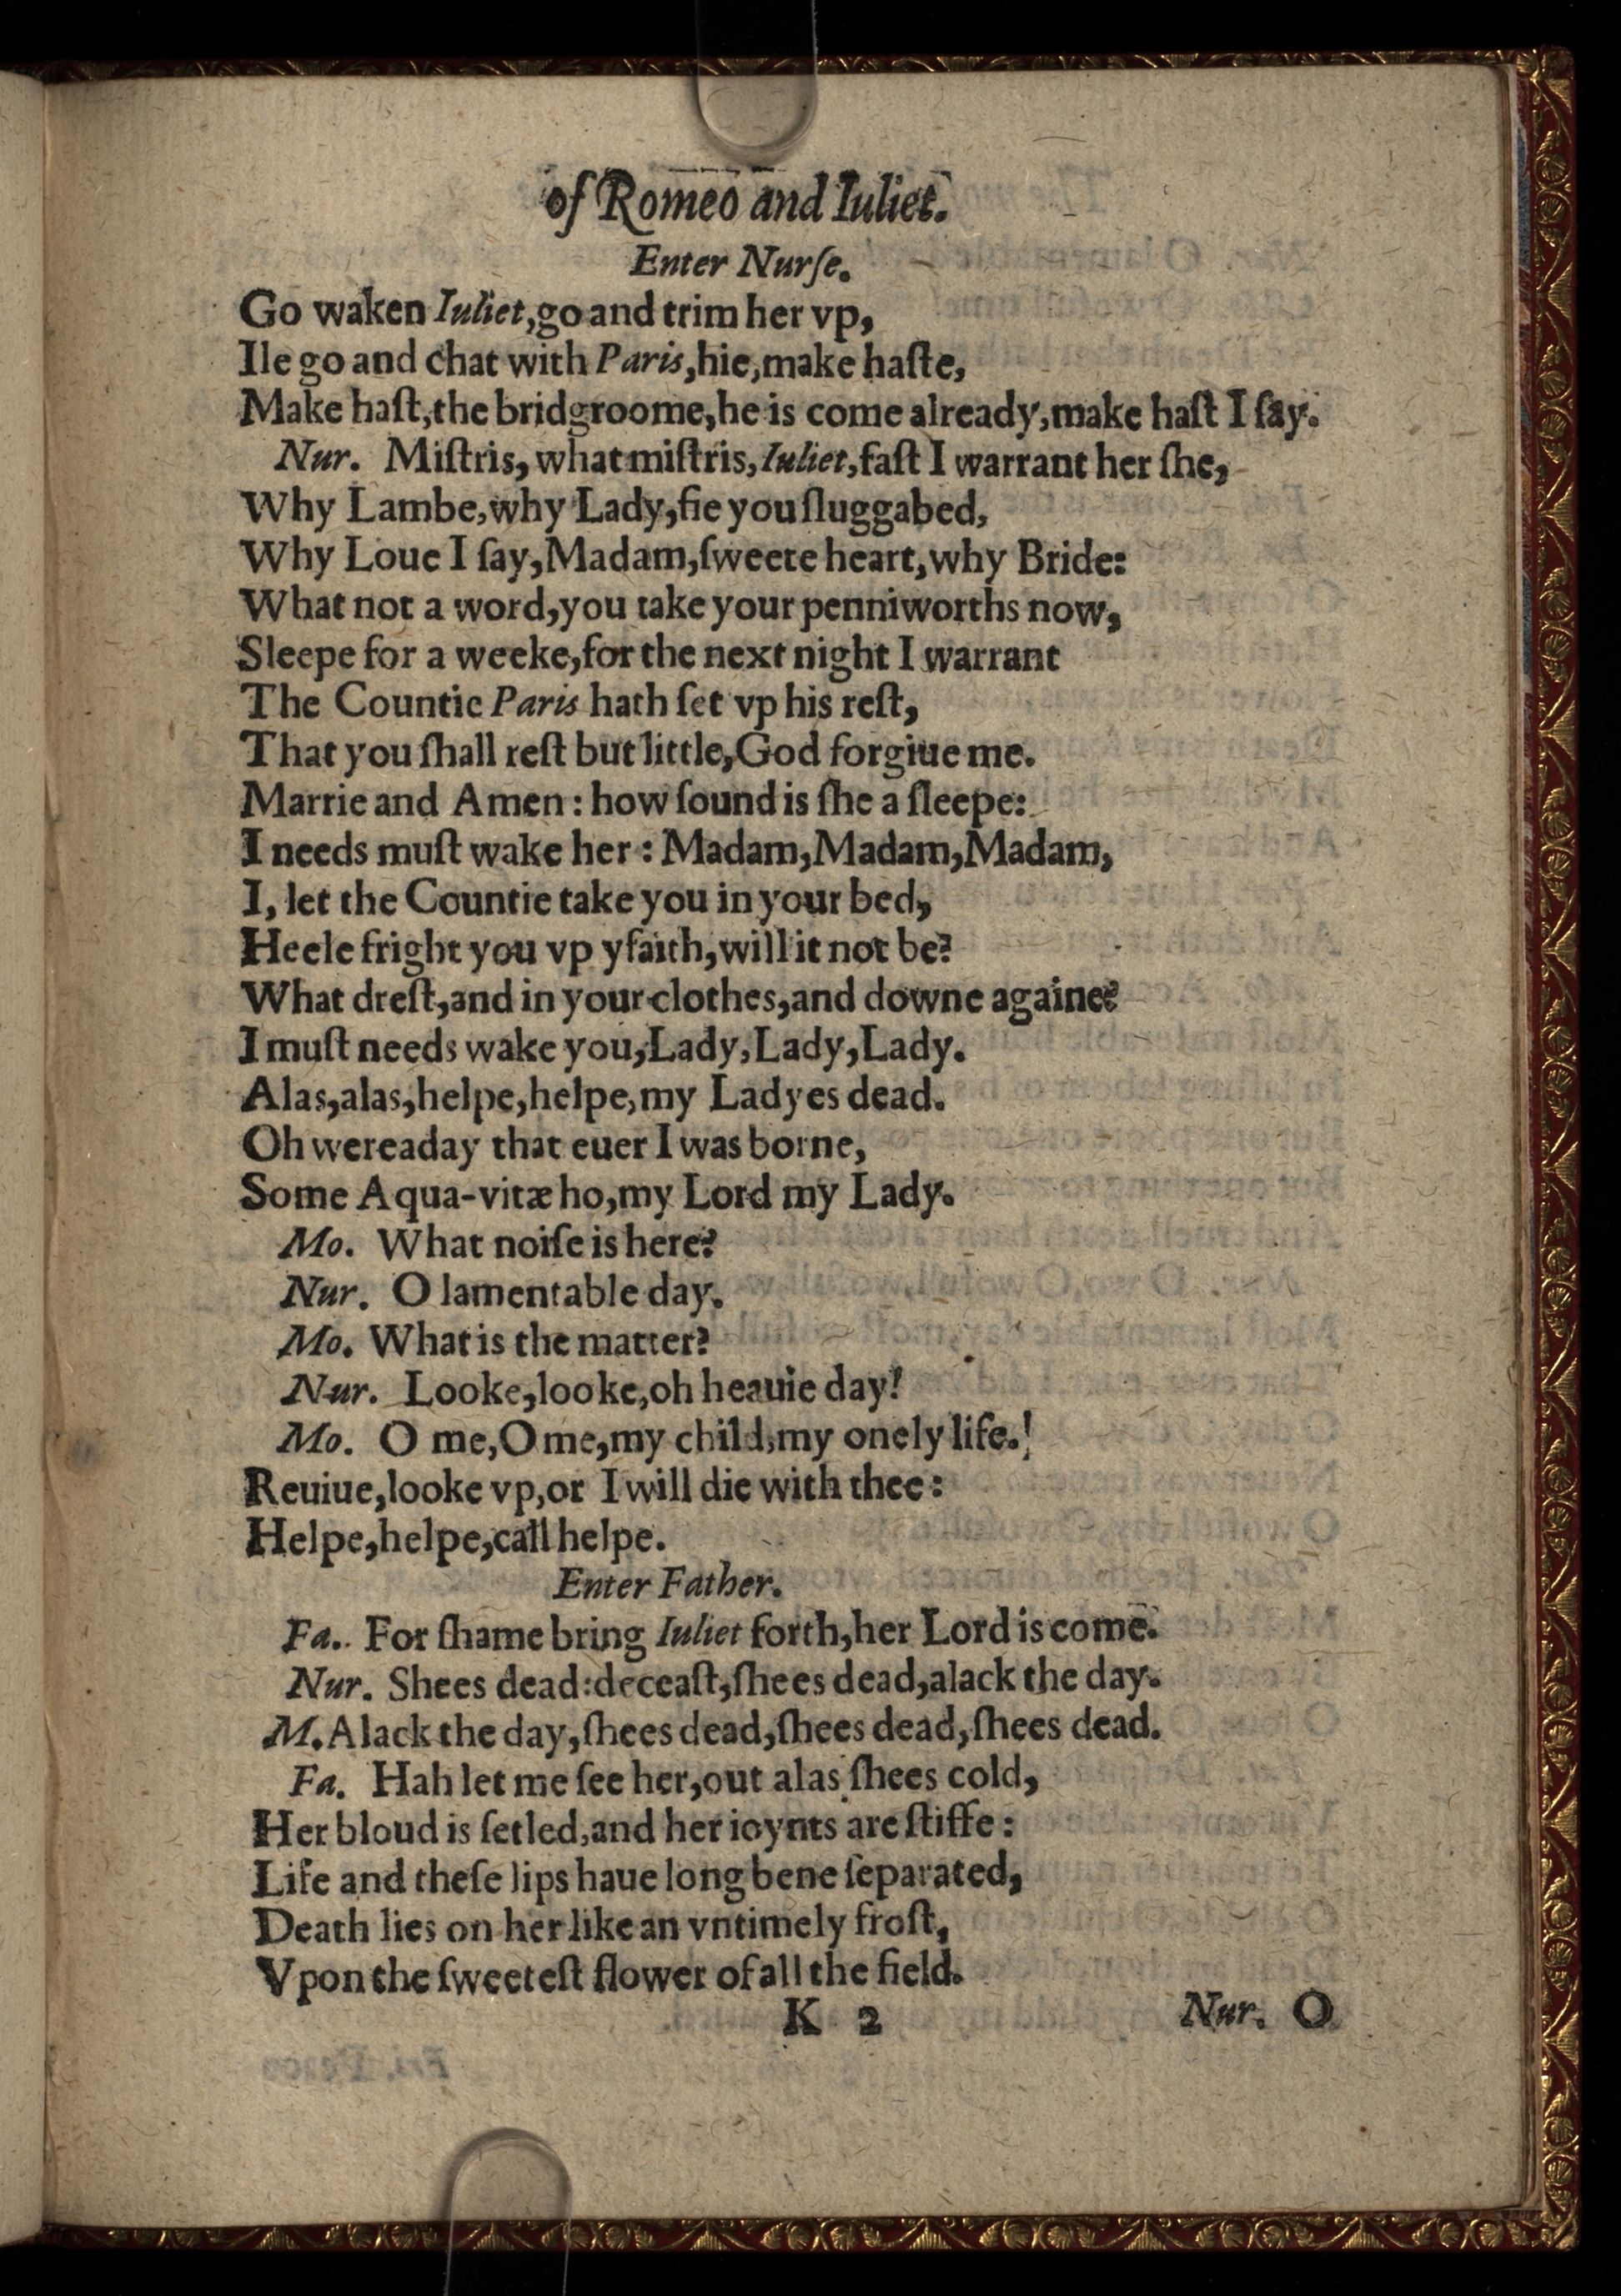 of Romeo and Iuliet.
Enter Nurſe.
Go waken Iuliet, go and trim her vp,
Ile go and chat with Paris, hie, make haſte,
Make haſt, the bridgroome, he is come already, make haſt I ſay.
Nur. Miſtris, what miſtris, Iuliet, faſt I warrant her ſhe,
Why Lambe, why Lady, fie you ſluggabed,
Why Loue I ſay, Madam, ſweete heart, why Bride:
What not a word, you take your penniworths now,
Sleepe for a weeke, for the next night I warrant
The Countie Paris hath ſet vp his reſt,
That you ſhall reſt but little, God forgiue me.
Marrie and Amen: how ſound is ſhe a ſleepe:
I needs muſt wake her: Madam, Madam, Madam,
I, let the Countie take you in your bed,
Heele fright you vp yfaith, will it not be?
What dreſt, and in your clothes, and downe againe?
I muſt needs wake you, Lady, Lady, Lady.
Alas, alas, helpe, helpe, my Ladyes dead.
Oh wereaday that euer I was borne,
Some Aqua-vitæ ho, my Lord my Lady.
Mo. What noiſe is here?
Nur. O lamentable day.
Mo. What is the matter?
Nur. Looke, looke, oh heauie day!
Mo. O me, O me, my child, my onely life.!
Reuiue, looke vp, or I will die with thee:
Helpe, helpe, call helpe.
Enter Father.
Fa. For ſhame bring Iuliet forth, her Lord is come.
Nur. Shees dead: deceaſt, ſhees dead, alack the day.
M. Alack the day, ſhees dead, ſhees dead, ſhees dead.
Fa. Hah let me ſee her, out alas ſhees cold,
Her bloud is ſetled, and her ioynts are ſtiffe:
Life and theſe lips haue long bene ſeparated,
Death lies on her like an vntimely froſt,
Vpon the ſweeteſt flower of all the field.
K 2 Nur. O